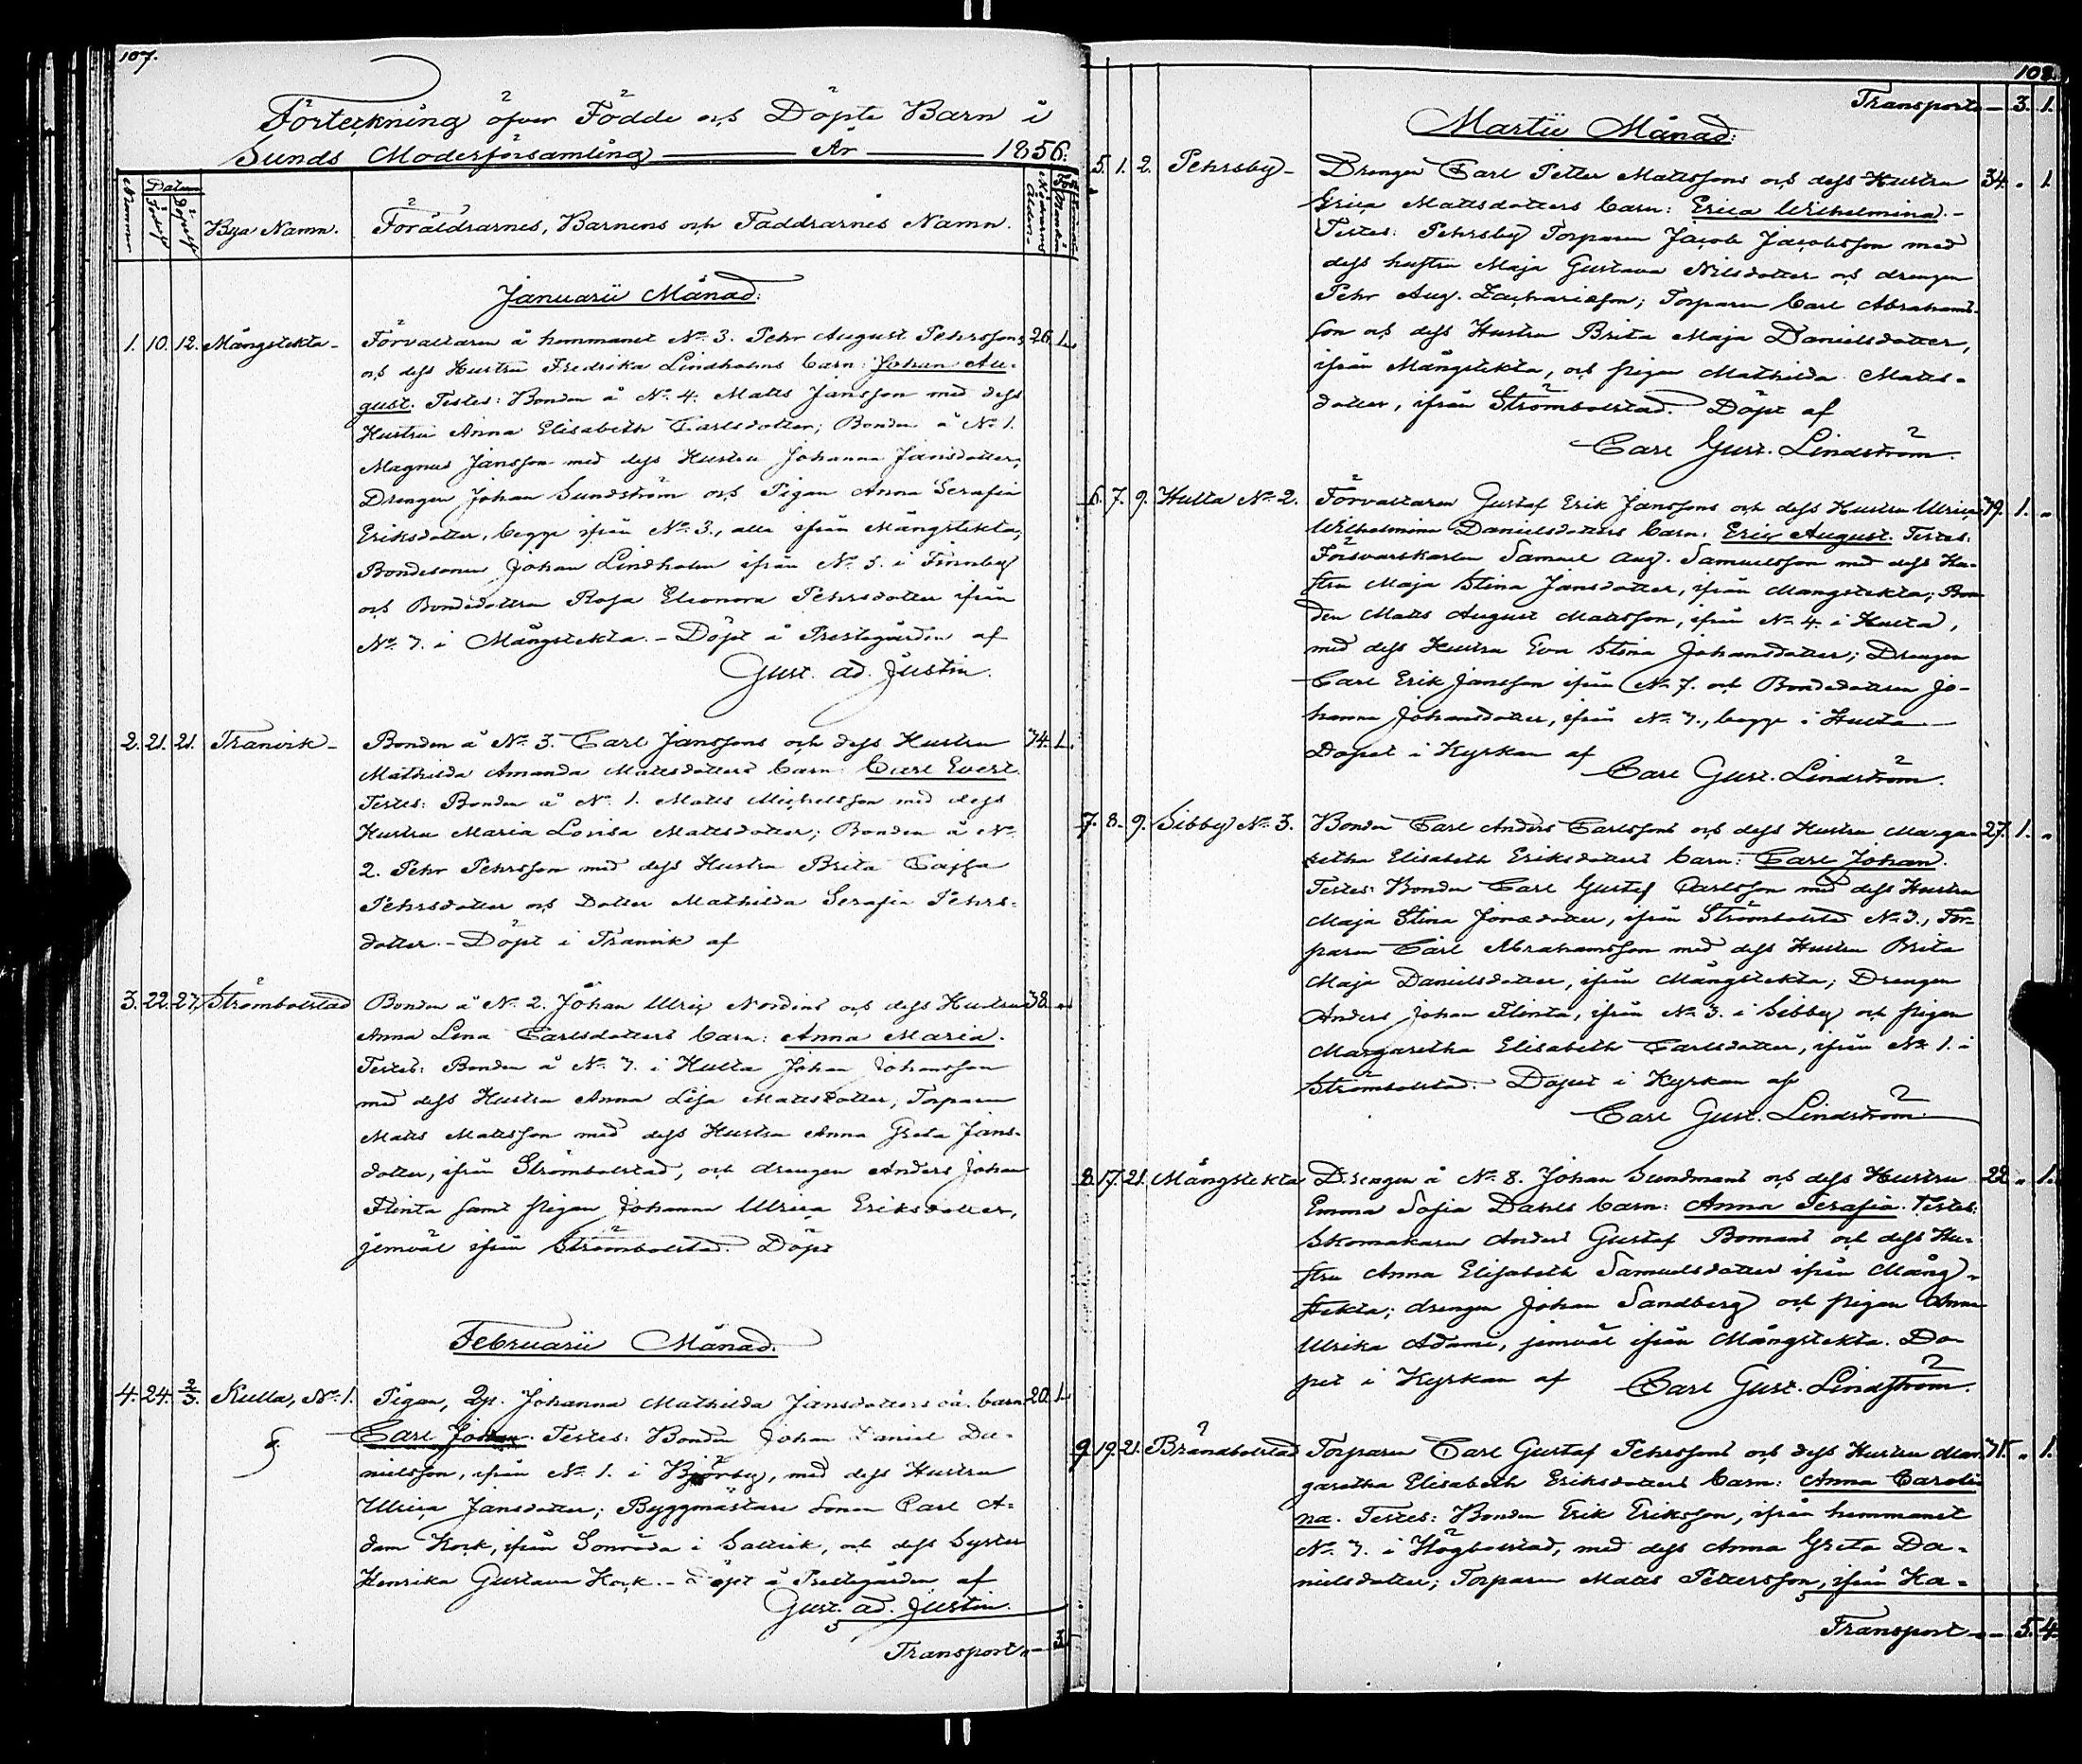 107.
Förteckning öfver Födde och Döpte Barn i
Sunds Moderförsamling — År — 1856:
Nummer
Datum
Född
Döpt
Bya Namn. Föräldrarnes, Barnens och Faddrarnes Namn.
Januarii Månad:
1. 10. 12. Mångstekta - Förvaltaren å hemmanet No. 3. Pehr August Pehrssons 26. 1.
och dess Hustru Fredrika Lindholms barn: Johan Au-
gust. Testes: Bonden å No. 4. Matts Jansson med dess
Hustru Anna Elisabeth Carlsdotter; Bonden å No 1.
Magnus Jansson med dess Hustru Johanna Jansdotter;
Drengen Johan Sundström och Pigan Anna Serafia
Eriksdotter, begge ifrån No. 3., alla ifrån Mångstekta;
Bondesonen Johan Lindholm ifrån No. 5. i Finnby
och Bondedottren Rosa Eleonora Pehrsdotter ifrån
No. 7. i Mångstekta. - Döpt å Prestegården af
Gust. ad. Justin.
2. 21. 21. Tranvik - Bonden å No. 3. Carl Janssons och dess Hustru 34. 1.
Mathilda Amanda Mattsdotters barn: Carl Evert.
Testes: Bonden å No. 1. Matts Michelsson med dess
Hustru Maria Lovisa Mattsdotter; Bonden å No.
2. Pehr Pehrsson med dess Hustru Brita Cajsa
Pehrsdotter och Dotter Mathilda Serafia Pehrs-
dotter. - Döpt i Tranvik af
3. 22. 27. Strömbolstad Bonden å No. 2. Johan Ulric Nordins och dess Hustru 38.
Anna Lena Carlsdotters barn: Anna Maria.
Testes: Bonden å No. 7. i Hulta Johan Johansson
med dess Hustru Anna Lisa Mattsdotter, Torparen
Matts Mattsson med dess Hustru Anna Greta Jans-
dotter, ifrån Strömbolstad, och drengen Anders Johan
Flinta samt pigan Johanna Ulrica Eriksdotter,
jemväl ifrån Strömbolstad. Döpt
Februarii Månad.
4. 24. 2/3. Kulla, No. 1. Pigan, Qp. Johanna Mathilda Jansdotters oä. barn 20. 1.
Carl Johan. Testes: Bonden Johan Daniel Da-
nielsson, ifrån No. 1. i Björby, med dess Hustru
Ulrica Jansdotter; Byggmästare Sonen Carl A-
dam Kock, ifrån Sonröda i Saltvik, och dess Syster
Henrika Gustava Kock. - Döpt å Prestegården af
Gust. ad. Justin.
Transport - 3.
108.
Transport - 3. 1.
Martii Månad:
5. 1. 2. Pehrsby - Drengen Carl Petter Mattssons och dess Hustru 34. " 1.
Erica Mattsdotters barn: Erica Wilhelmina. -
Testes: Pehrsby Torparen Jacob Jacobsson med
dess hustru Maja Gustava Nilsdotter och drengen
Pehr Aug. Zachariesson; Torparen Carl Abrahams-
son och dess Hustru Brita Maja Danielsdotter,
ifrån Mångstekta, och pigan Mathilda Matts-
dotter, ifrån Strömbolstad. Döpt af
Carl Gust. Lindström.
6. 7. 9. Hulta No. 2. Förvaltaren Gustaf Erik Janssons och dess Hustru Ulrica 39. 1. "
Wilhelmina Danielsdotters barn: Eric August. Testes:
Försvarskarlen Samuel Aug. Samuelsson med dess Hu-
stru Maja Stina Jansdotter, ifrån Mångstekta; Bon-
den Matts August Mattsson, ifrån No. 4. i Hulta,
med dess Hustru Eva Stina Johansdotter; Drengen
Carl Erik Jansson ifrån No. 7. och Bondedottren Jo-
hanna Johansdotter, ifrån No. 7., begge i Hulta. —
Döpet i Kyrkan af
Carl Gust. Lindström.
7. 8. 9. Sibby No. 3. Bonden Carl Anders Carlssons och dess Hustru Marga- 27. 1. "
retha Elisabeth Eriksdotters barn: Carl Johan.
Testes: Bonden Carl Gustaf Carlsson med dess Hustru
Maja Stina Jonædotter, ifrån Strömbolsted No. 3., Tor-
paren Carl Abrahamsson med dess Hustru Brita
Maja Danielsdotter, ifrån Mångstekta; Drengen
Anders Johan Flinta, ifrån No. 3. i Sibby och pigan
Margaretha Elisabeth Carlsdotter, ifrån No 1. i
Strömbolstad. Döpet i Kyrkan af
Carl Gust. Lindström.
8. 17. 21. Mångstekta Drengen å No. 8. Johan Sundmans och dess Hustru 22. " 1.
Emma Sofia Dahls barn: Anna Serafia. Testes:
Skomakaren Anders Gustaf Bomans och dess Hu-
stru Anna Elisabeth Samuelsdotter ifrån Mång-
stekta; drengen Johan Sandberg och pigan Anna
Ulrika Adami, jemväl ifrån Mångstekta. Dö-
pet i Kyrkan af Carl Gust. Lindström.
9. 19. 21. Brändbolstad Torparen Carl Gustaf Pehrssons och dess Hustru Mar- 31. " 1.
garetha Elisabeth Eriksdotters barn: Anna Caroli-
na. Testes: Bonden Erik Eriksson, ifrån hemmanet
No. 7. i Högbolstad, med dess Anna Greta Da-
nielsdotter; Torparen Matts Pettersson, ifrån Ha-
Transport - 5. 4.